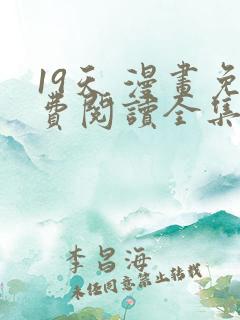 19天 漫畫免
費閱讀全集
李昌海
未经同意禁止转载